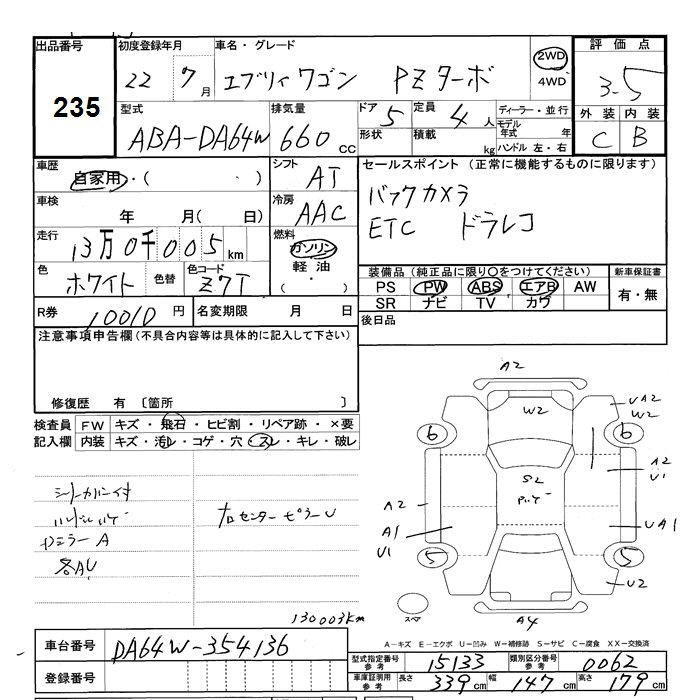 出品番号 初度登録年月 車名・グレード 評価点
235
22 7月 エブリィワゴン PZターボ 2WD 4WD 3.5
型式 排気量 ドア 5 定員 4人 ディーラー・並行 外装 内装
ABA-DA64W 660cc 形状 積載 kg モデル年式 年 C B
ハンドル 左・右
車歴 シフト セールスポイント (正常に機能するものに限ります)
自家用・( ) AT
バックカメラ
車検 冷房
年 月( 日) AAC ETC ドラレコ
走行 燃料
13万0千005km ガソリン
色 色替 色コード 軽油 装備品 (純正品に限り○をつけてください) 新車保証書
ホワイト Z7T (・) PS PW ABS エアB AW 有・無
SR ナビ TV カワ
R券 10010円 名変期限 月 日 後日品
注意事項申告欄 (不具合内容等は具体的に記入して下さい)
修復歴 有 〔箇所 〕
検査員 FW キズ・飛石・ヒビ割・リペア跡・×要
記入欄 内装 キズ・汚レ・コゲ・穴・スレ・キレ・破レ
A2
W2
UA2
W2
6 6
A2
U1
S2
A2
A1
U1
UA1
5 5
U2
スペア
A4
シートカバー付
ハンドルハゲ
ドミラーA
各AU
ナロセンターピラーU
130003km
A-キズ E-エクボ U-凹み W-補修跡 S-サビ C-腐食 XX-交換済
車台番号 DA64W-354136
型式指定番号 参考 15133 類別区分番号 参考 0062
登録番号
車庫証明用 参考 長さ 339cm 幅 147cm 高さ 179cm